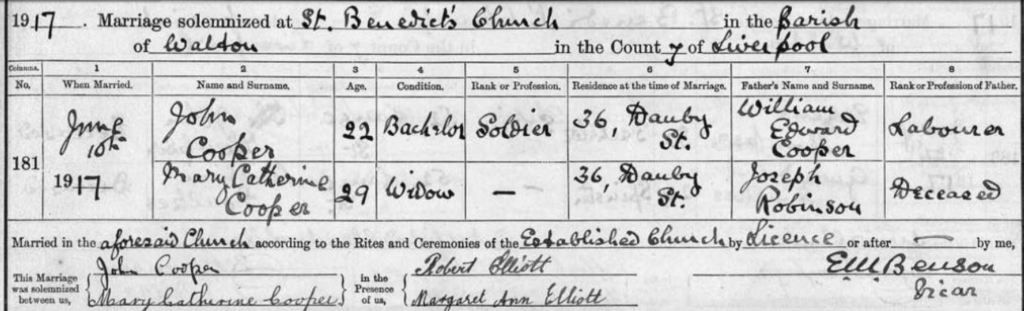 1917. Marriage solemnized at St. Benedict's Church in the Parish
of Walton in the County of Liverpool
Columns. 1 2 3 4 5 6 7 8
No. When Married. Name and Surname. Age. Condition. Rank or Profession. Residence at the time of Marriage. Father's Name and Surname. Rank or Profession of Father.
181
June
10th
1917
John
Cooper
22 Bachelor Soldier 36, Dauby
St.
William
Edward
Cooper
Labourer
Mary Catherine
Cooper
29 Widow — 36, Dauby
St.
Joseph
Robinson
Deceased
Married in the aforesaid Church according to the Rites and Ceremonies of the Established Church by Licence or after — by me,
This Marriage
was solemnized
between us,
John Cooper
Mary Catherine Cooper
in the
Presence
of us,
Robert Elliott
Margaret Ann Elliott
EWBenson
Vicar